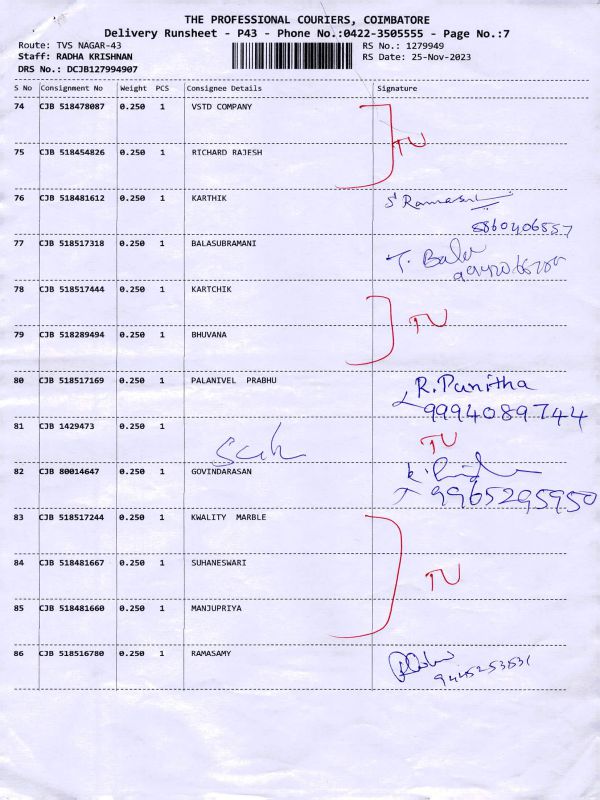 THE PROFESSIONAL COURIERS, COIMBATORE
Delivery Runsheet - P43 - Phone No.:0422-3505555 - Page No.:7
Route: TVS NAGAR-43 RS No.: 1279949
Staff: RADHA KRISHNAN RS Date: 25-Nov-2023
DRS No.: DCJB127994907
S No Consignment No Weight PCS Consignee Details Signature
74 CJB 518478087 0.250 1 VSTD COMPANY
TU
75 CJB 518454826 0.250 1 RICHARD RAJESH
76 CJB 518481612 0.250 1 KARTHIK
8860406557
77 CJB 518517318 0.250 1 BALASUBRAMANI T. Bala
78 CJB 518517444 0.250 1 KARTCHIK
TU
79 CJB 518289494 0.250 1 BHUVANA
80 CJB 518517169 0.250 1 PALANIVEL PRABHU R. Punitha
9994089744
81 CJB 1429473 0.250 1
TU
82 CJB 80014647 0.250 1 GOVINDARASAN
9965295950
83 CJB 518517244 0.250 1 KWALITY MARBLE
84 CJB 518481667 0.250 1 SUHANESWARI
TU
85 CJB 518481660 0.250 1 MANJUPRIYA
86 CJB 518516780 0.250 1 RAMASAMY
9445253531